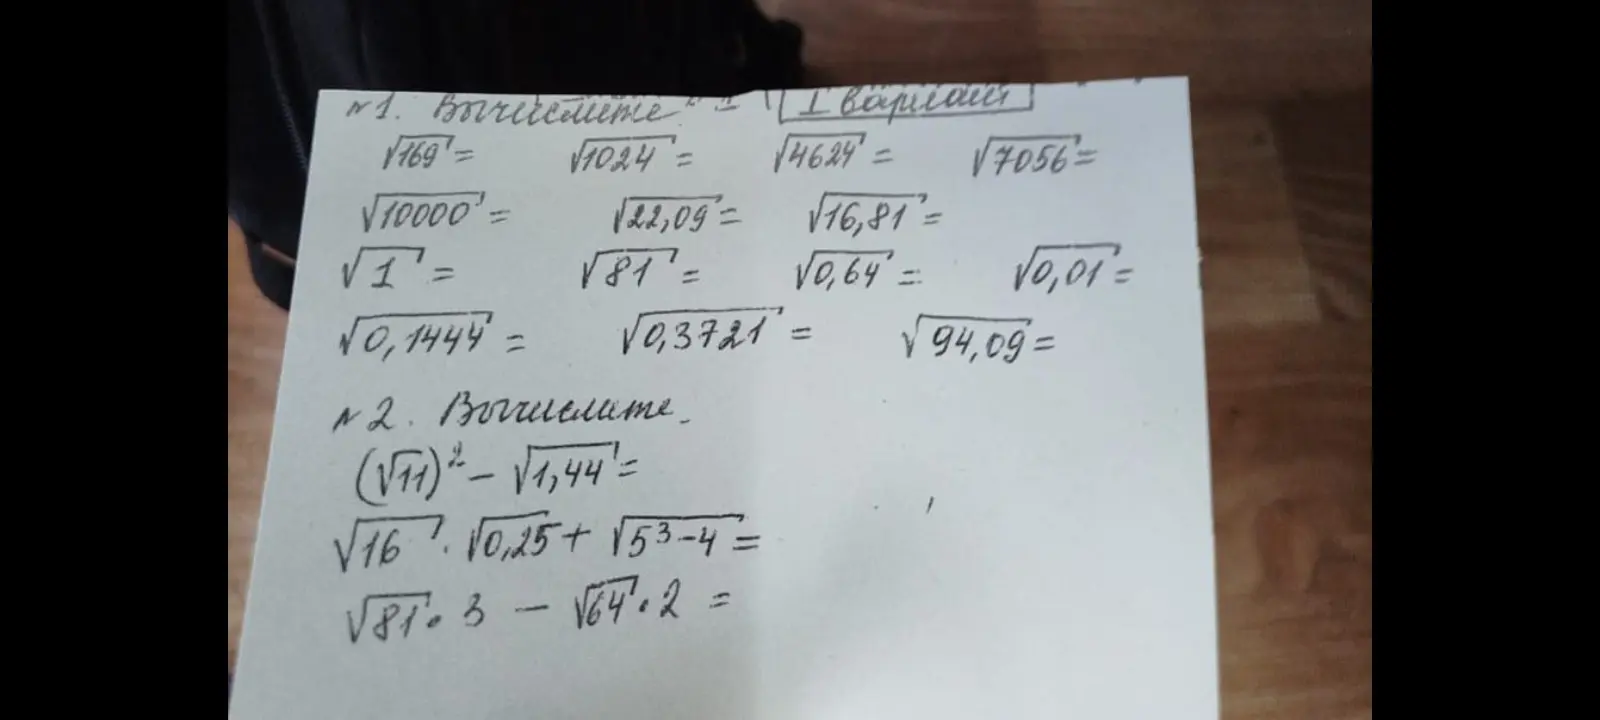 №1. Вычислите I вариант
√169 = √1024 = √4624 = √7056 =
√10000 = √22,09 = √16,81 =
√1 = √81 = √0,64 = √0,01 =
√0,1444 = √0,3721 = √94,09 =
№2. Вычислите.
(√11)² - √1,44 =
√16 · √0,25 + √5³-4 =
√81 · 3 - √64 · 2 =